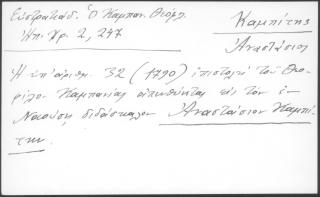 Εὐστρατιάδ. Ὁ Καμπαν. Θεόφιλ.
Ἠπ. Χρ. 2, 247
Καμπίτης
Ἀναστάσιος
Ἡ ὑπ' ἀριθμ. 32 (1790) ἐπιστολὴ τοῦ Θεο-
φίλου Καμπανίας ἀπευθύνεται εἰς τὸν ἐν
Ναούσῃ διδάσκαλον Ἀναστάσιον Καμπί-
την.